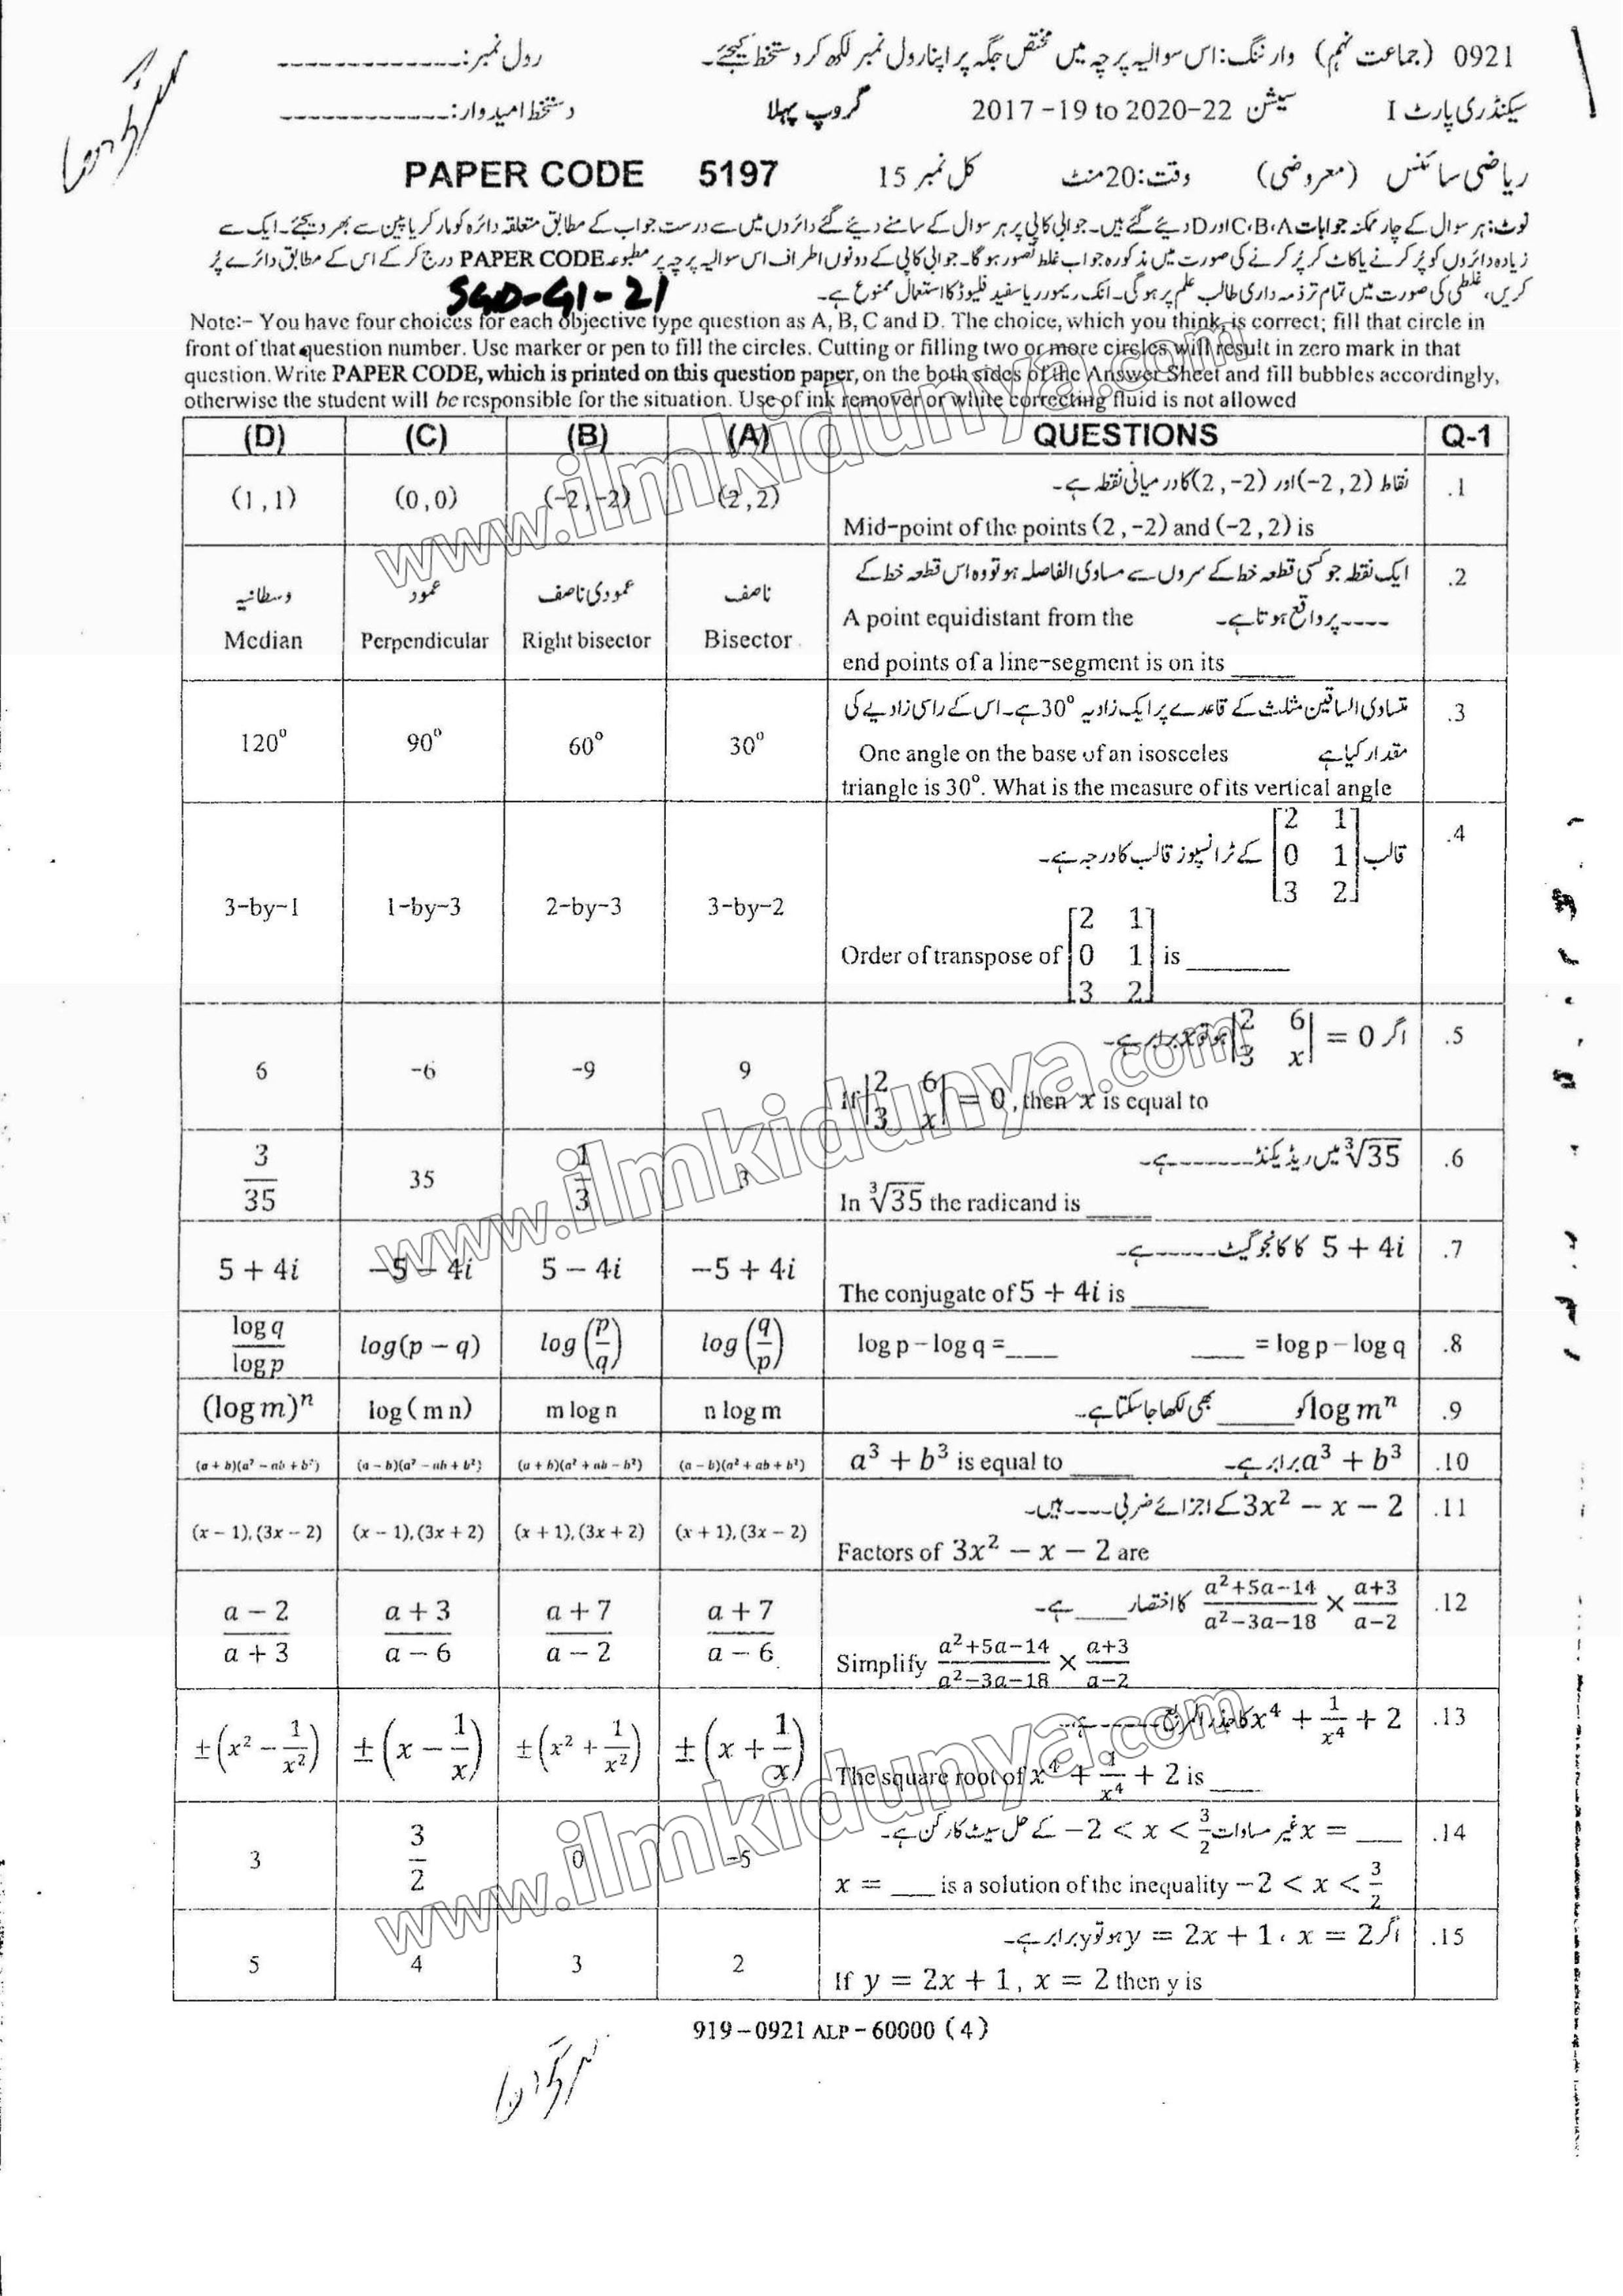 0921 (جماعت نہم) وارننگ: اس سوالیہ پرچہ میں مختص جگہ پر اپنا رول نمبر لکھ کر دستخط کیجئے۔ رول نمبر: -------------
سیکنڈری پارٹ I سیشن 2017 -19 to 2020-22 گروپ پہلا دستخط امیدوار: -------------
ریاضی سائنس (معروضی) وقت: 20 منٹ کل نمبر 15 PAPER CODE 5197
نوٹ: ہر سوال کے چار ممکنہ جوابات C، B، A اور D دیئے گئے ہیں۔ جوابی کاپی پر ہر سوال کے سامنے دیئے گئے دائروں میں سے درست جواب کے مطابق متعلقہ دائرہ کو مارکر یا پین سے بھر دیجئے۔ ایک سے
زیادہ دائروں کو پُر کرنے یا کاٹ کر پُر کرنے کی صورت میں مذکورہ جواب غلط تصور ہوگا۔ جوابی کاپی کے دونوں اطراف اس سوالیہ پرچہ پر مطبوعہ PAPER CODE درج کر کے اس کے مطابق دائرے پُر
کریں، غلطی کی صورت میں تمام تر ذمہ داری طالب علم پر ہوگی۔ انک ریموور یا سفید فلیوڈ کا استعمال ممنوع ہے۔
SGD-G1-21
Note:- You have four choices for each objective type question as A, B, C and D. The choice, which you think, is correct; fill that circle in
front of that question number. Use marker or pen to fill the circles. Cutting or filling two or more circles will result in zero mark in that
question. Write PAPER CODE, which is printed on this question paper, on the both sides of the Answer Sheet and fill bubbles accordingly,
otherwise the student will be responsible for the situation. Use of ink remover or white correcting fluid is not allowed
(D) (C) (B) (A) QUESTIONS Q-1
نقاط (-2, 2) اور (2, -2) کا درمیانی نقطہ ہے۔ .1
(1, 1) (0, 0) (-2, -2) (2, 2)
Mid-point of the points (2, -2) and (-2, 2) is
ایک نقطہ جو کسی قطعہ خط کے سروں سے مساوی الفاصلہ ہو تو وہ اس قطعہ خط کے .2
وسطانیہ عمود عمودی ناصف ناصف
A point equidistant from the ----پر واقع ہوتا ہے۔
Median Perpendicular Right bisector Bisector
end points of a line-segment is on its ____
متساوی الساقین مثلث کے قاعدے پر ایک زاویہ 30° ہے۔ اس کے راسی زاویے کی .3
120° 90° 60° 30°
One angle on the base of an isosceles مقدار کیا ہے
triangle is 30°. What is the measure of its vertical angle
قالب [2 1; 0 1; 3 2] کے ٹرانسپوز قالب کا درجہ ہے۔ .4
3-by-1 1-by-3 2-by-3 3-by-2
Order of transpose of [2 1; 0 1; 3 2] is ______
اگر |2 6; 3 x| = 0 ہو تو x برابر ہے۔ .5
6 -6 -9 9
If |2 6; 3 x| = 0, then x is equal to
∛35 میں ریڈیکنڈ -------ہے۔ .6
3/35 35 1/3 3
In ∛35 the radicand is ____
5 + 4i کا کانجوگیٹ ------ہے۔ .7
5 + 4i −5 − 4i 5 − 4i −5 + 4i
The conjugate of 5 + 4i is ____
log q/log p log(p − q) log(p/q) log(q/p) log p – log q = ____ ____ = log p – log q .8
(log m)ⁿ log(mn) m log n n log m log mⁿ کو _____ بھی لکھا جا سکتا ہے۔ .9
(a + b)(a² − ab + b²) (a − b)(a² − ab + b²) (a + b)(a² + ab − b²) (a − b)(a² + ab + b²) a³ + b³ is equal to ____ a³ + b³ برابر ہے۔ .10
3x² − x − 2 کے اجزائے ضربی ----ہیں۔ .11
(x − 1), (3x − 2) (x − 1), (3x + 2) (x + 1), (3x + 2) (x + 1), (3x − 2)
Factors of 3x² − x − 2 are
(a²+5a−14)/(a²−3a−18) × (a+3)/(a−2) کا اختصار ____ہے۔ .12
(a − 2)/(a + 3) (a + 3)/(a − 6) (a + 7)/(a − 2) (a + 7)/(a − 6)
Simplify (a²+5a−14)/(a²−3a−18) × (a+3)/(a−2)
x⁴ + 1/x⁴ + 2 کا جذر المربع .13
±(x² − 1/x²) ±(x − 1/x) ±(x² + 1/x²) ±(x + 1/x)
The square root of x⁴ + 1/x⁴ + 2 is ____
x = ___ غیر مساوات −2 < x < 3/2 کے حل سیٹ کا رکن ہے۔ .14
3 3/2 0 −5
x = ___ is a solution of the inequality −2 < x < 3/2
اگر y = 2x + 1، x = 2 ہو تو y برابر ہے۔ .15
5 4 3 2
If y = 2x + 1, x = 2 then y is
919 – 0921 ALP – 60000 (4)
www.ilmkidunya.com
www.ilmkidunya.com
www.ilmkidunya.com